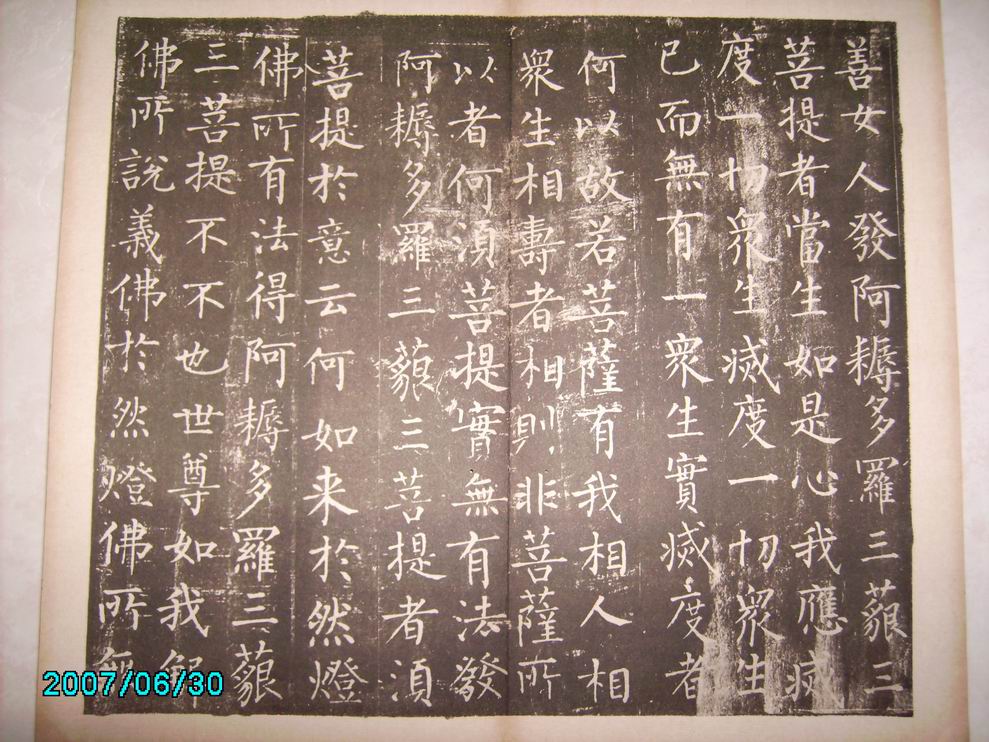 善女人發阿耨多羅三藐三
菩提者當生如是心我應滅
度一切眾生滅度一切眾生
已而無有一眾生實滅度者
何以故若菩薩有我相人相
眾生相壽者相則非菩薩所
以者何須菩提實無有法發
阿耨多羅三藐三菩提者須
菩提於意云何如来於然燈
佛所有法得阿耨多羅三藐
三菩提不不也世尊如我解
佛所說義佛於然燈佛所無
2007/06/30